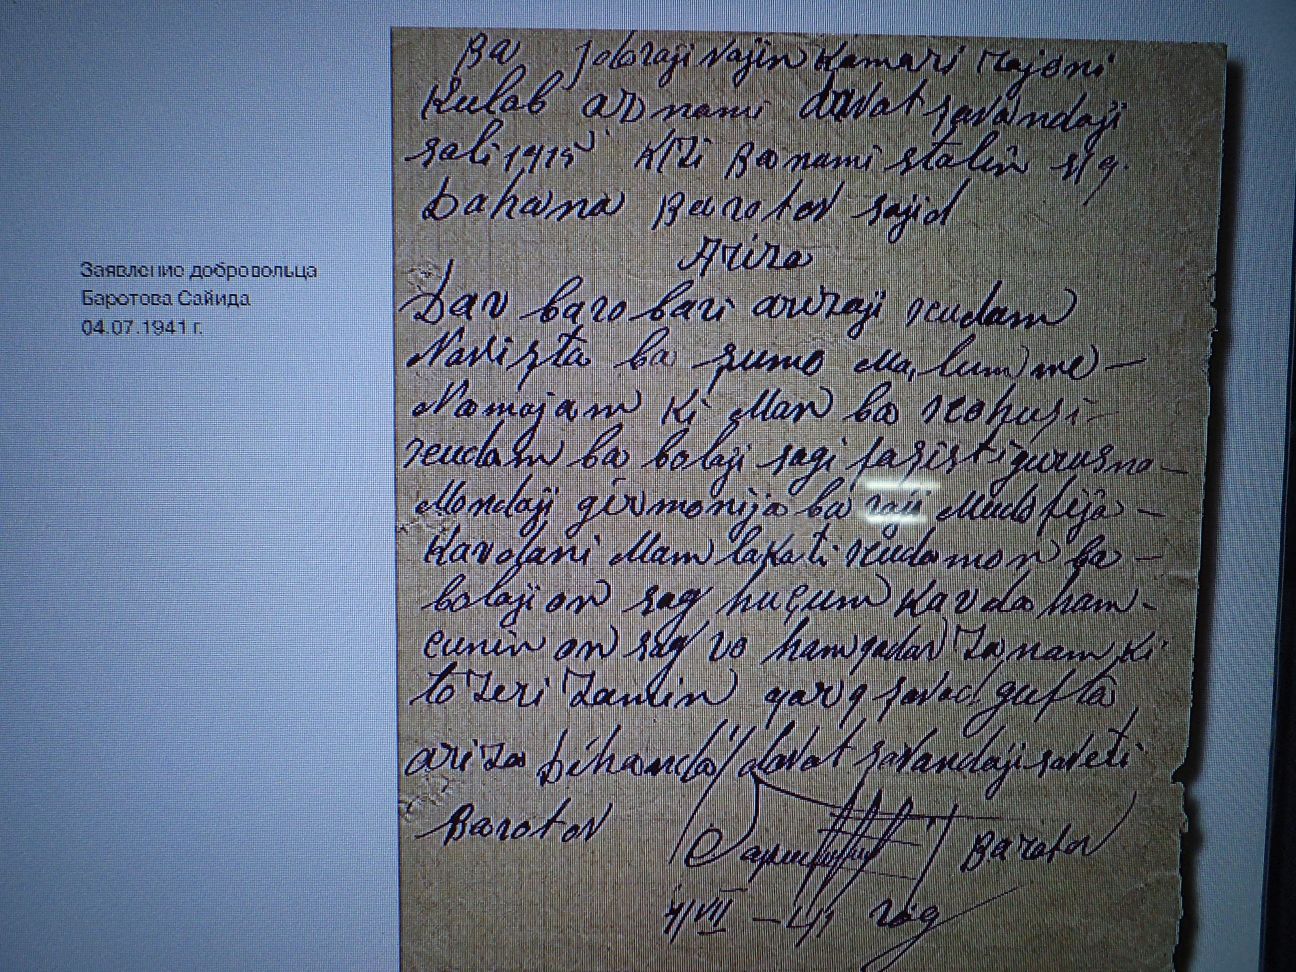 Заявление добровольца
Баротова Сайида
04.07.1941 г.
Ba vajin Kamari Rajoni
Kulob az nami davat şavandaji
soli 1919 Ba nami stalin s/q.
Dahana Barotov sajid
Ariza
Dar barobari arizaji xudam
Navişta ba şumo Malum me-
Namojam Ki Man ba xohişi
xudam ba bolaji sagi faşisti guruşna-
Mondaji girmonija ba Mudofija-
Kardani Mamlakati xudamon ba-
bolaji on sag huçum Karda ham-
cunin on sag ro hamqadar Zanam Ki
to Zeri Zamin qarq şavad gufta
ariza Dihanda davat şavandaji
Barotov Barotov
4/VII-41